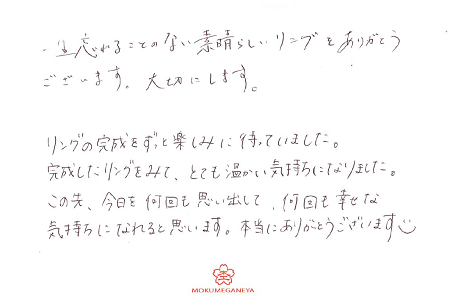 一生忘れることのない素晴らしいリングをありがとう
ございます。大切にします。
リングの完成をずっと楽しみに待っていました。
完成したリングをみて、とても温かい気持ちになりました。
この先、今日を何回も思い出して、何回も幸せな
気持ちになれると思います。本当にありがとうございます
MOKUMEGANEYA